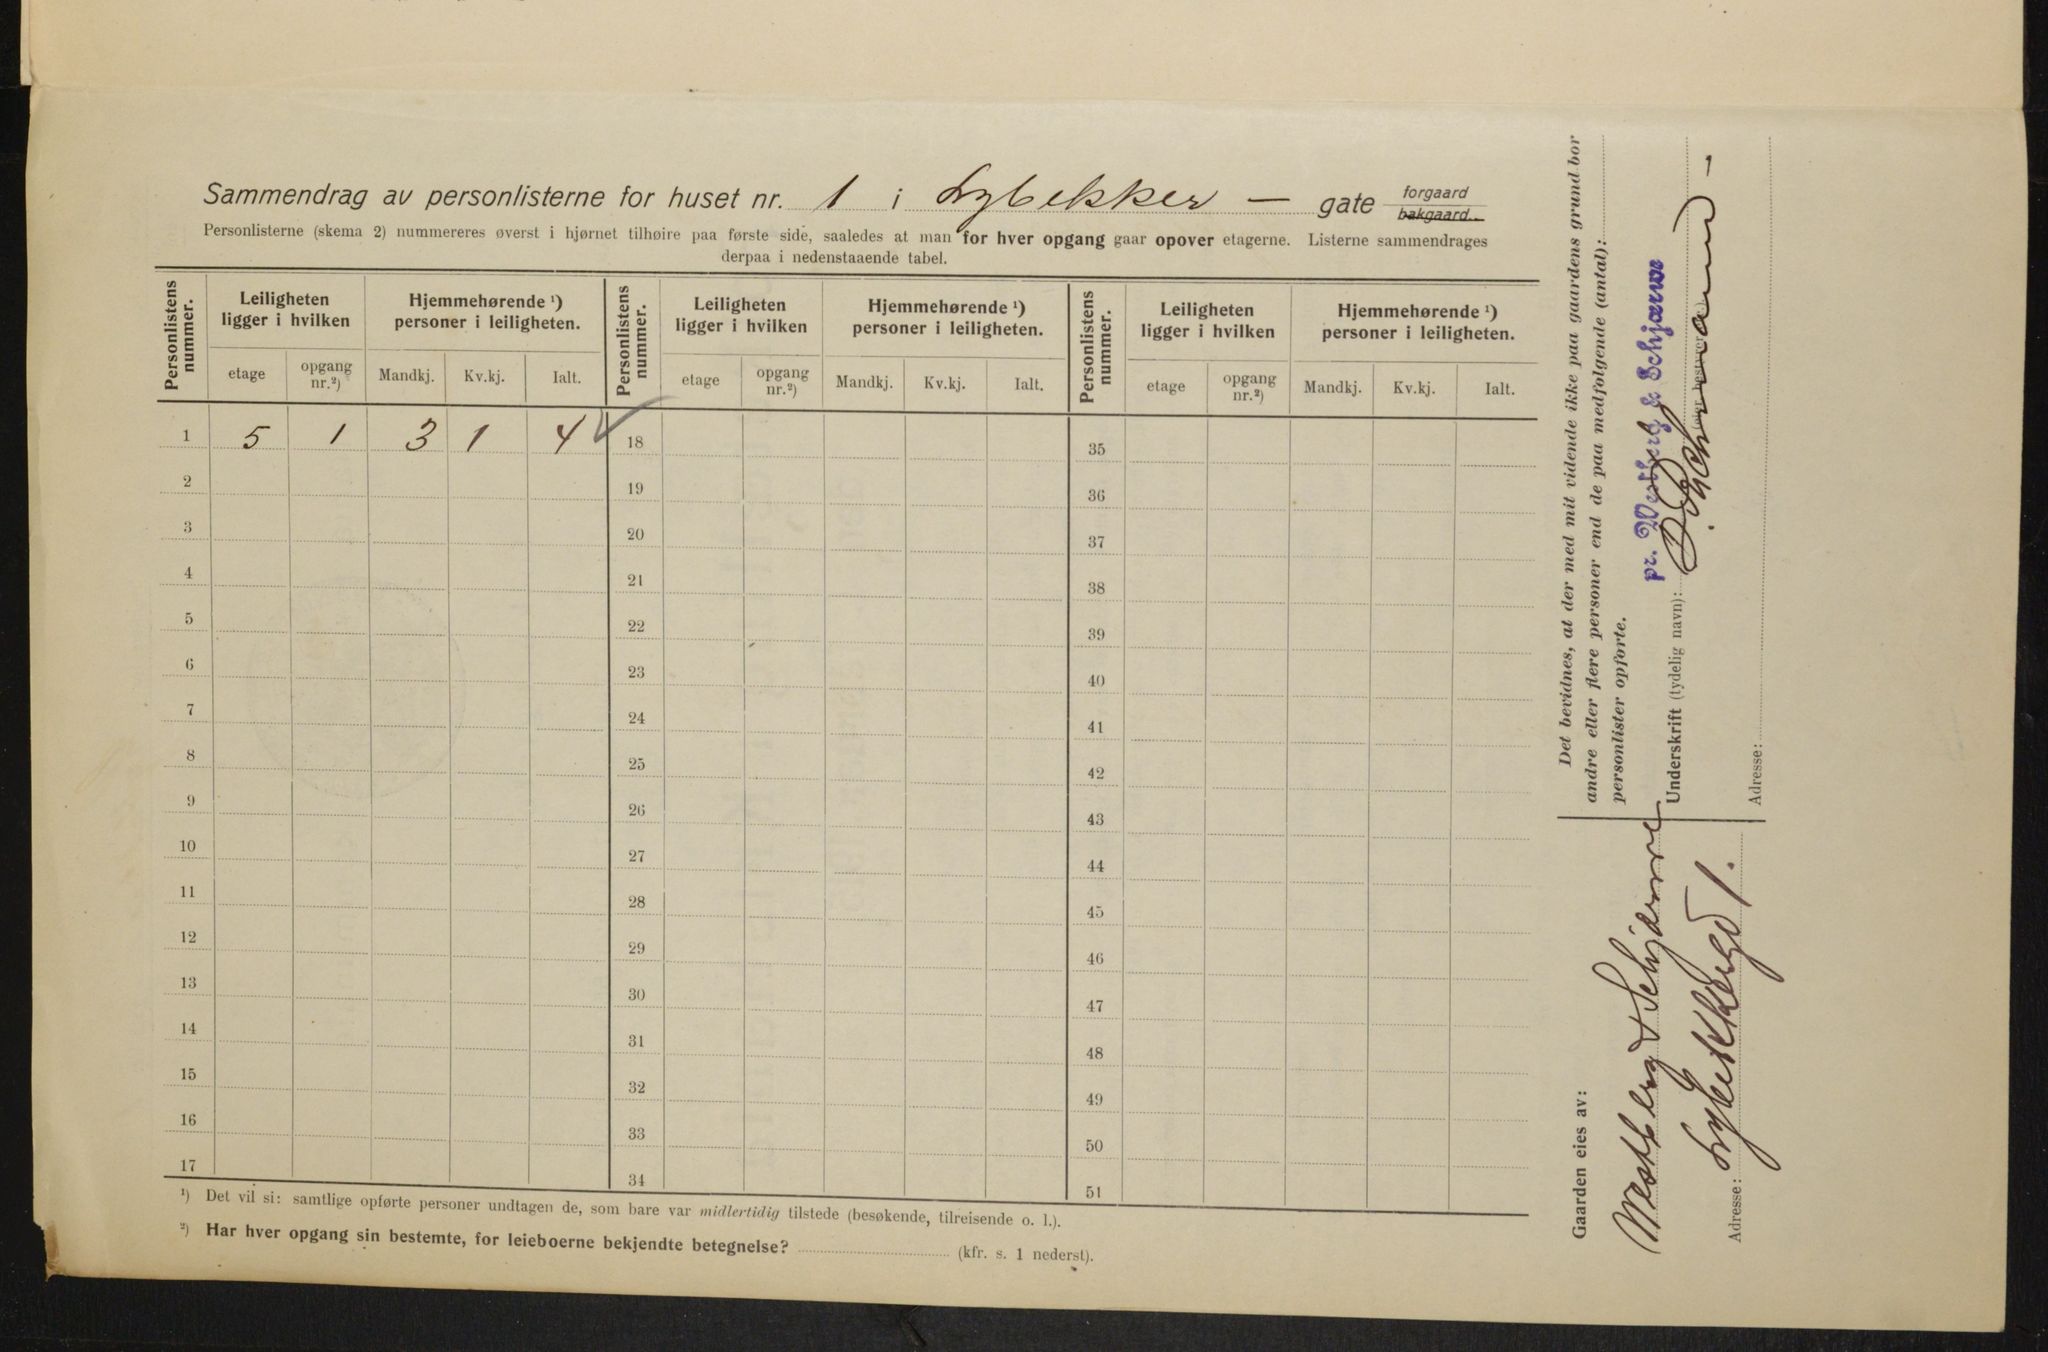 Sammendrag av personlisterne for huset nr. 1 i Lybekker — gate forgaard bakgaard.
Personlisterne (skema 2) nummereres øverst i hjørnet tilhøire paa første side, saaledes at man for hver opgang gaar opover etagerne. Listerne sammendrages
derpaa i nedenstaaende tabel.
Personlistens nummer. Leiligheten ligger i hvilken Hjemmehørende ¹) personer i leiligheten. Personlistens nummer. Leiligheten ligger i hvilken Hjemmehørende ¹) personer i leiligheten. Personlistens nummer. Leiligheten ligger i hvilken Hjemmehørende ¹) personer i leiligheten.
etage opgang nr.²) Mandkj. Kv.kj. Ialt. etage opgang nr.²) Mandkj. Kv.kj. Ialt. etage opgang nr.²) Mandkj. Kv.kj. Ialt.
1 5 1 3 1 4 18 35
2 19 36
3 20 37
4 21 38
5 22 39
6 23 40
7 24 41
8 25 42
9 26 43
10 27 44
11 28 45
12 29 46
13 30 47
14 31 48
15 32 49
16 33 50
17 34 51
¹) Det vil si: samtlige opførte personer undtagen de, som bare var midlertidig tilstede (besøkende, tilreisende o. l.).
²) Har hver opgang sin bestemte, for leieboerne bekjendte betegnelse? (kfr. s. 1 nederst).
Det bevidnes, at der med mit vidende ikke paa gaardens grund bor
andre eller flere personer end de paa medfølgende (antal):
personlister opførte.
pr. Westberg & Schjærve
Underskrift (tydelig navn):
Adresse:
Gaarden eies av:
Westberg & Schjærve
Adresse: Lybekkergd 1.